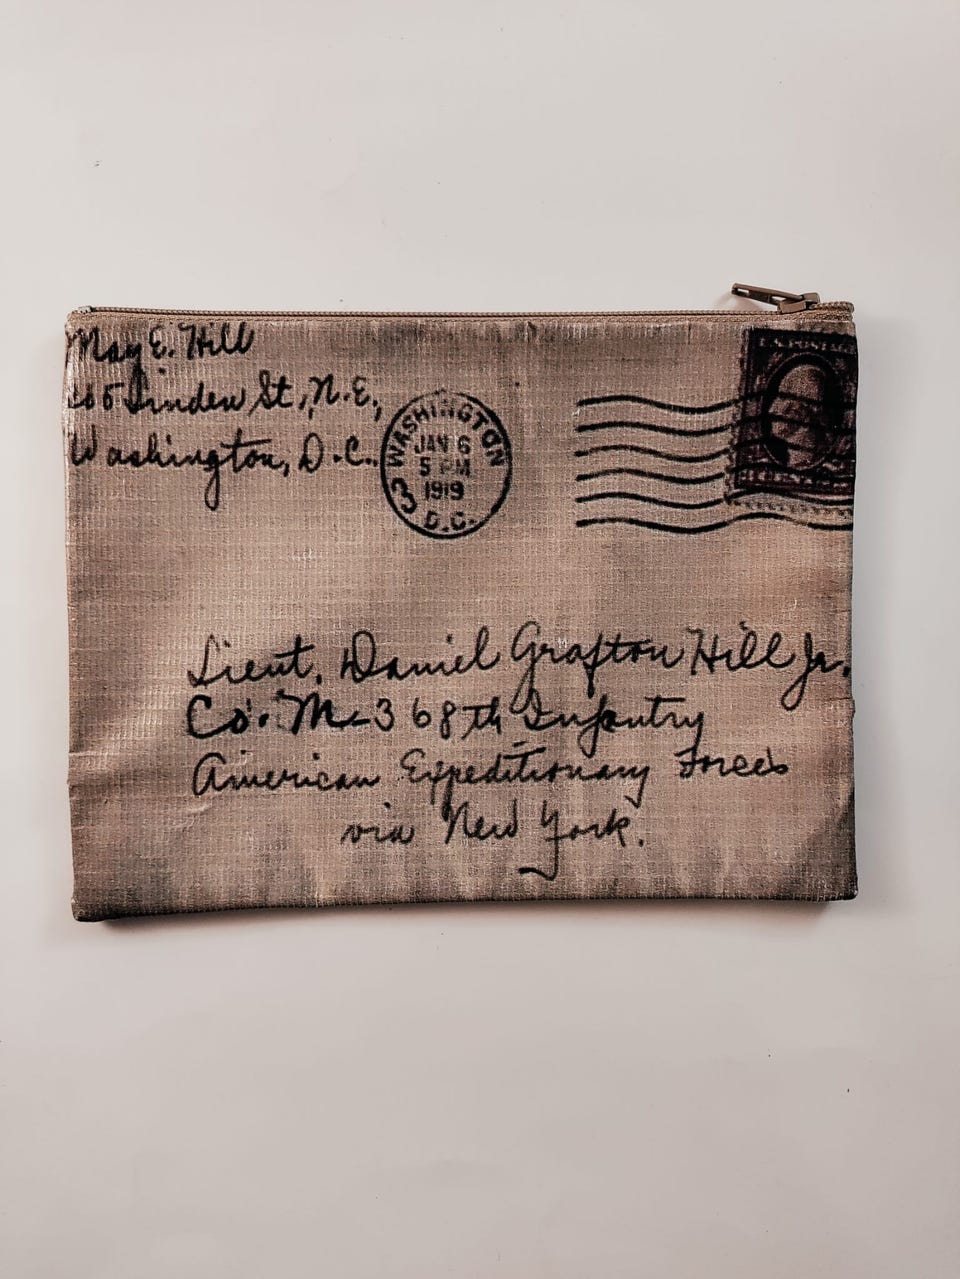 May E. Hill
Linden St., N.E.,
Washington, D.C.
WASHINGTON
JAN 6
5 PM
1919
3 D.C.
Lieut. Daniel Grafton Hill Jr.
Co. M - 368th Infantry
American Expeditionary Forces
via New York.